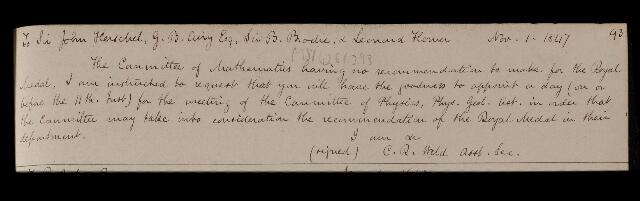 To Sir John Herschel, G. B. Airy Esq, Sir B. Brodie, & Leonard Horner Nov. 1. 1847 93
The Committee of Mathematics having no recommendation to make for the Royal
Medal, I am instructed to request that you will have the goodness to appoint a day (on or
before the 11th Inst) for the meeting of the Committee of Physics, Phys. Geol. &ct. in order that
the Committee may take into consideration the recommendation of the Royal Medal in their
department.
I am &c
(signed) C. R. Weld Asst. Sec.